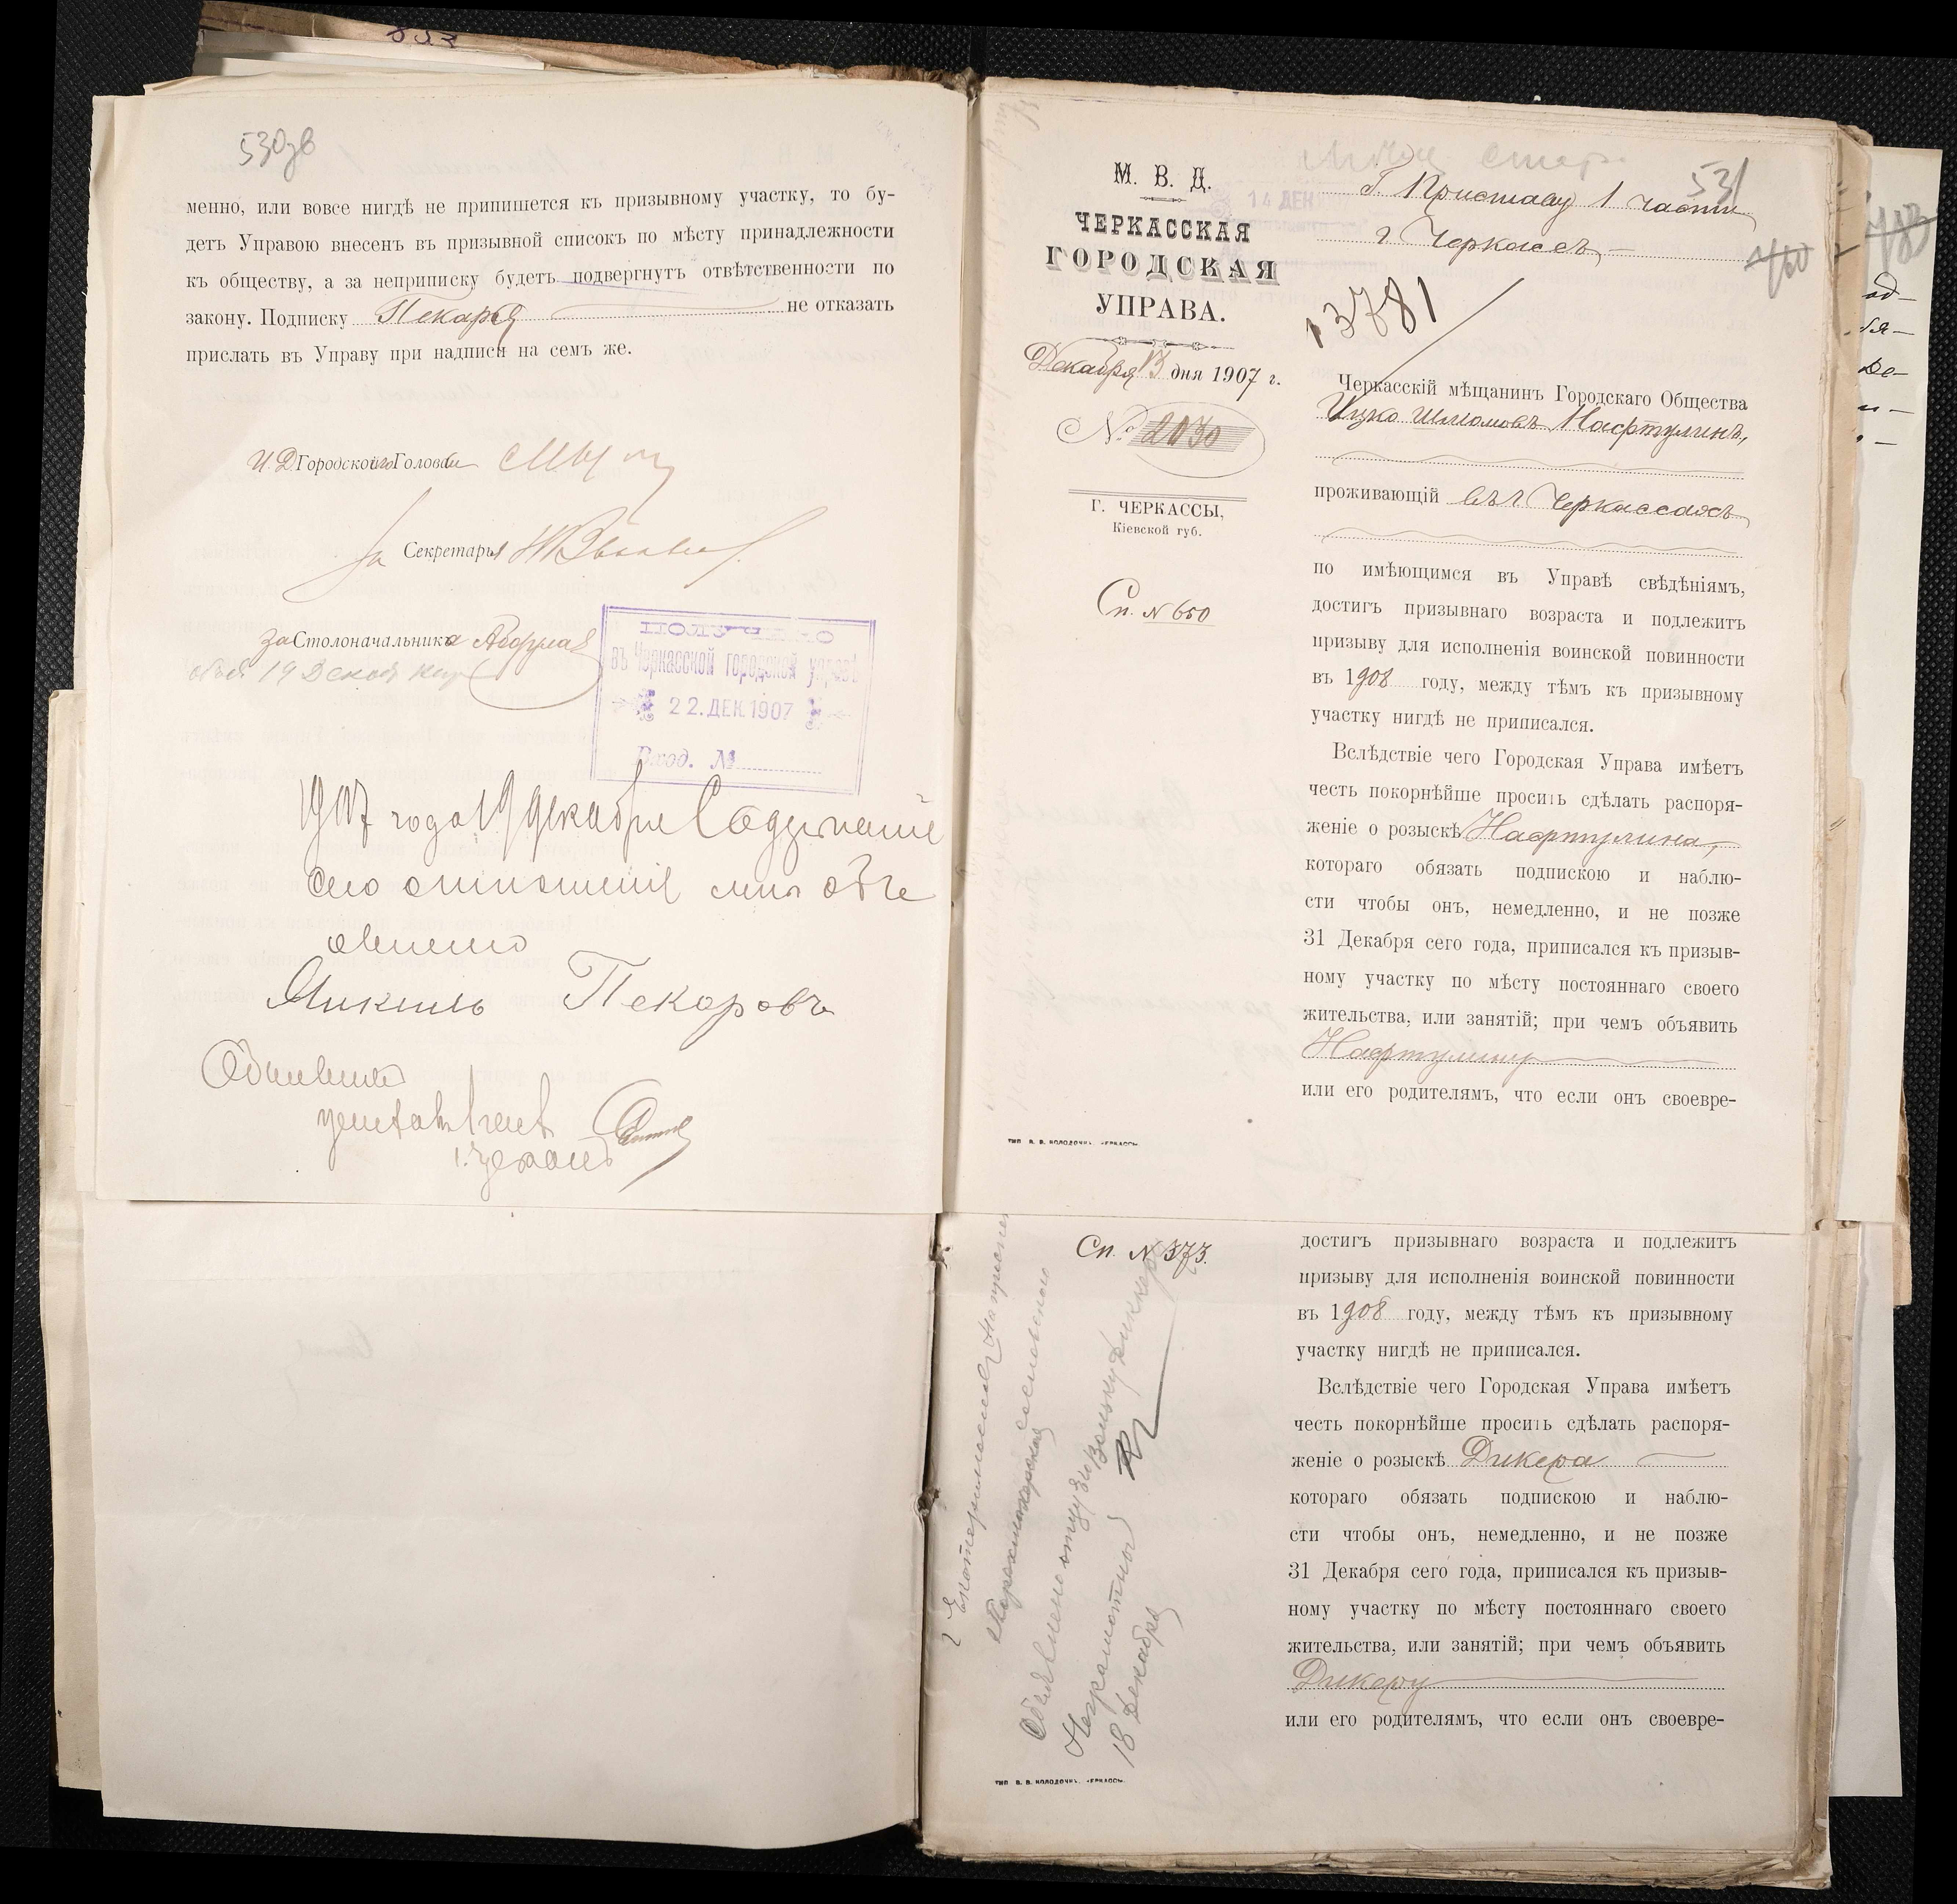 530об
менно, или вовсе нигдѣ не припишется къ призывному участку, то бу-
детъ Управою внесенъ въ призывной списокъ по мѣсту принадлежности
къ обществу, а за неприписку будетъ подвергнутъ отвѣтственности по
закону. Подписку Пекаря не отказать
прислать въ Управу при надписи на семъ же.
И. Д. Городского Головы
За Секретаря
За Столоначальника
19 Декаб
ПОЛУЧЕНО
въ Черкасской городской управѣ
22. ДЕК. 1907
Вход. №
1907 года 19 декабря Содержаніе
сего отношеніе мнѣ объе
явлено
Пекоровъ
531
Г. Приставу 1 части
г. Черкассъ
14 ДЕК
М. В. Д.
ЧЕРКАССКАЯ
ГОРОДСКАЯ
УПРАВА.
Декабря 13 дня 1907 г.
№ 2030
Г. ЧЕРКАССЫ,
Кіевской губ.
Сп. № 650
13781
Черкасскій мѣщанинъ Городскаго Общества
Ицко Шлиомовъ Нафтулинъ,
проживающій въ г. Черкассахъ
по имѣющимся въ Управѣ свѣдѣніямъ,
достигъ призывнаго возраста и подлежитъ
призыву для исполненія воинской повинности
въ 1908 году, между тѣмъ къ призывному
участку нигдѣ не приписался.
Вслѣдствіе чего Городская Управа имѣетъ
честь покорнѣйше просить сдѣлать распоря-
женіе о розыскѣ Нафтулина,
котораго обязать подпискою и наблю-
сти чтобы онъ, немедленно, и не позже
31 Декабря сего года, приписался къ призыв-
ному участку по мѣсту постояннаго своего
жительства, или занятій; при чемъ объявить
Нафтулину
или его родителямъ, что если онъ своевре-
Сп. № 373.
достигъ призывнаго возраста и подлежитъ
призыву для исполненія воинской повинности
въ 1908 году, между тѣмъ къ призывному
участку нигдѣ не приписался.
Вслѣдствіе чего Городская Управа имѣетъ
честь покорнѣйше просить сдѣлать распоря-
женіе о розыскѣ Дикера
котораго обязать подпискою и наблю-
сти чтобы онъ, немедленно, и не позже
31 Декабря сего года, приписался къ призыв-
ному участку по мѣсту постояннаго своего
жительства, или занятій; при чемъ объявить
Дикеру
или его родителямъ, что если онъ своевре-
Объявлено отцу его
Неграмотный
18 Декабря